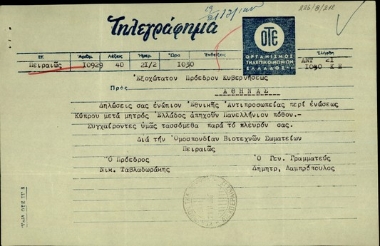 Τηλεγράφημα
ΟΤΕ
ΟΡΓΑΝΙΣΜΟΣ
ΤΗΛΕΠΙΚΟΙΝΩΝΙΩΝ
ΕΛΛΑΔΟΣ
ΕΞ
Πειραιῶς 10929 40 21/2 1030
1050
Ἐξοχώτατον Πρόεδρον Κυβερνήσεως
Πρὸς
ΑΘΗΝΑΣ
Δηλώσεις σας ἐνώπιον Ἐθνικῆς Ἀντιπροσωπείας περὶ ἑνώσεως
Κύπρου μετὰ μητρὸς Ἑλλάδος ἀπηχοῦν Πανελλήνιον πόθον.
Συγχαίροντες ὑμᾶς τασσόμεθα παρὰ τὸ πλευρόν σας.
Διὰ τὴν Ὁμοσπονδίαν Βιοτεχνῶν Σωματείων
Πειραιῶς
Ὁ Πρόεδρος Ὁ Γεν. Γραμματεύς
Νικ. Ταβλαδωράκης Δημητρ. Λαμπρόπουλος